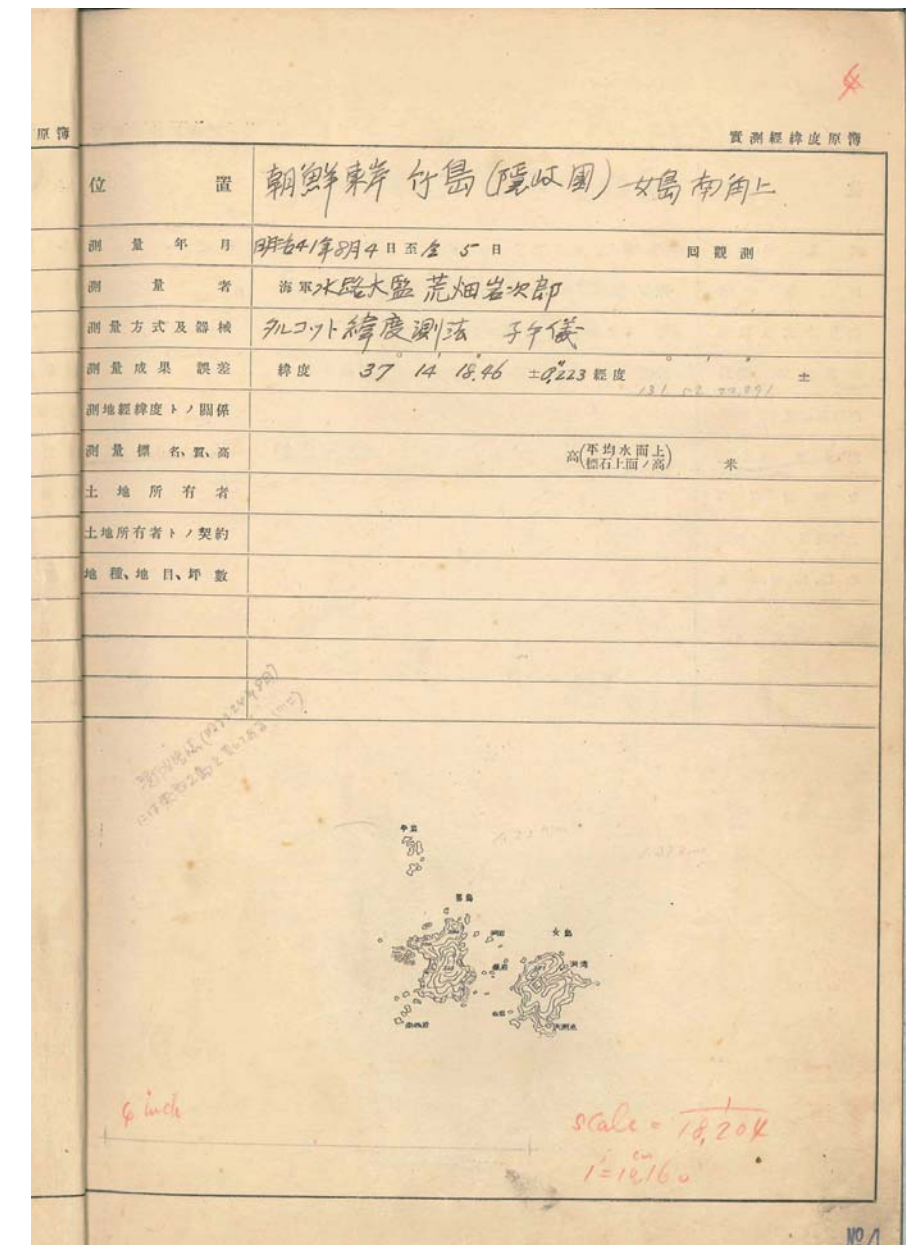 原簿
實測經緯度原簿
位置 朝鮮東岸 竹島(隱岐國) 女島南角上
測量年月 明治41年8月4日至仝5日 回觀測
測量者 海軍水路大監 荒畑岩次郎
測量方式及器械 タルコット緯度測法 子午儀
測量成果 誤差 緯度 37° 14′ 18.″46 ±0.″223 經度 131 02 22.291 ±
測地經緯度トノ關係
測量標 名、質、高 高(平均水面上 標石上面ノ高) 米
土地所有者
土地所有者トノ契約
地種、地目、坪數
男島
女島
洞湾
天測点
6 inch
scale = 1/18,204
Nº 1